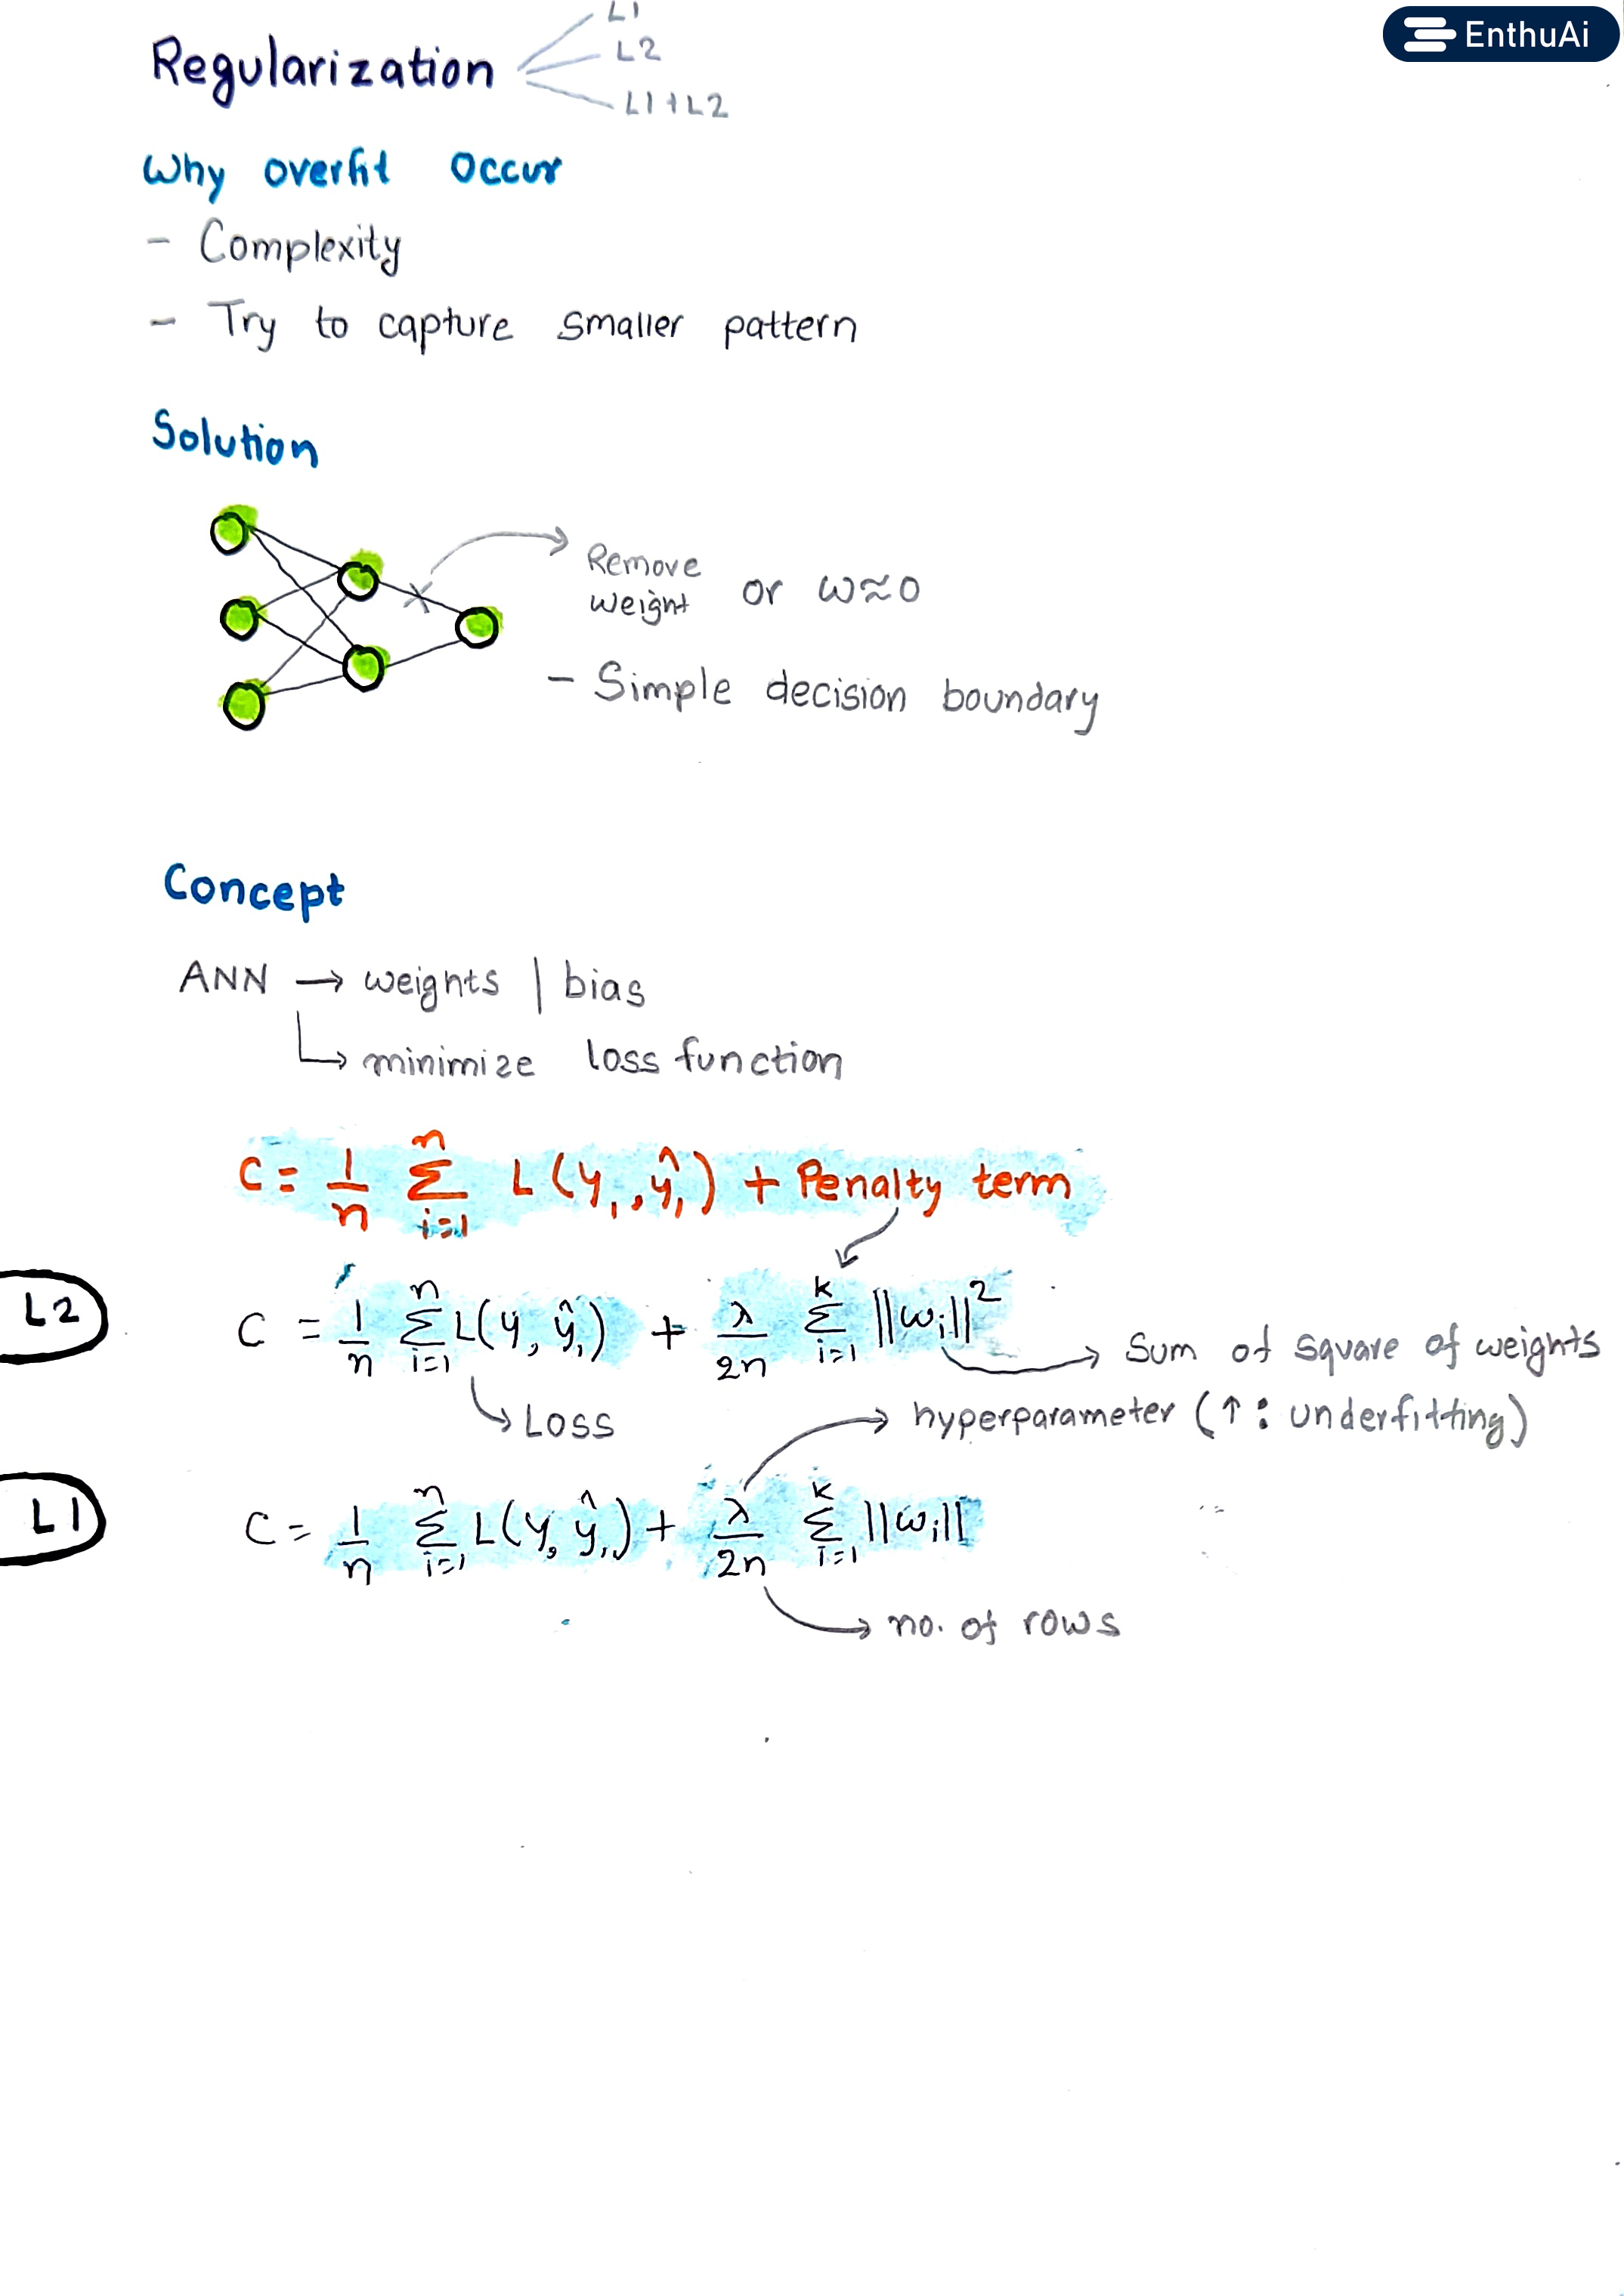 EnthuAi
Regularization
L1
L2
L1+L2
Why overfit occur
- Complexity
- Try to capture smaller pattern
Solution
Remove weight or w≈0
- Simple decision boundary
Concept
ANN → weights | bias
↳ minimize loss function
C = 1/n n Σ i=1 L(y₁, ŷ₁) + Penalty term
L2
C = 1/n n Σ i=1 L(y, ŷ₁) + λ/2n k Σ i=1 ||wᵢ||²
→ Sum of square of weights
↳ Loss
→ hyperparameter (↑ : underfitting)
L1
C = 1/n n Σ i=1 L(y, ŷ₁) + λ/2n k Σ i=1 ||wᵢ||
→ no. of rows